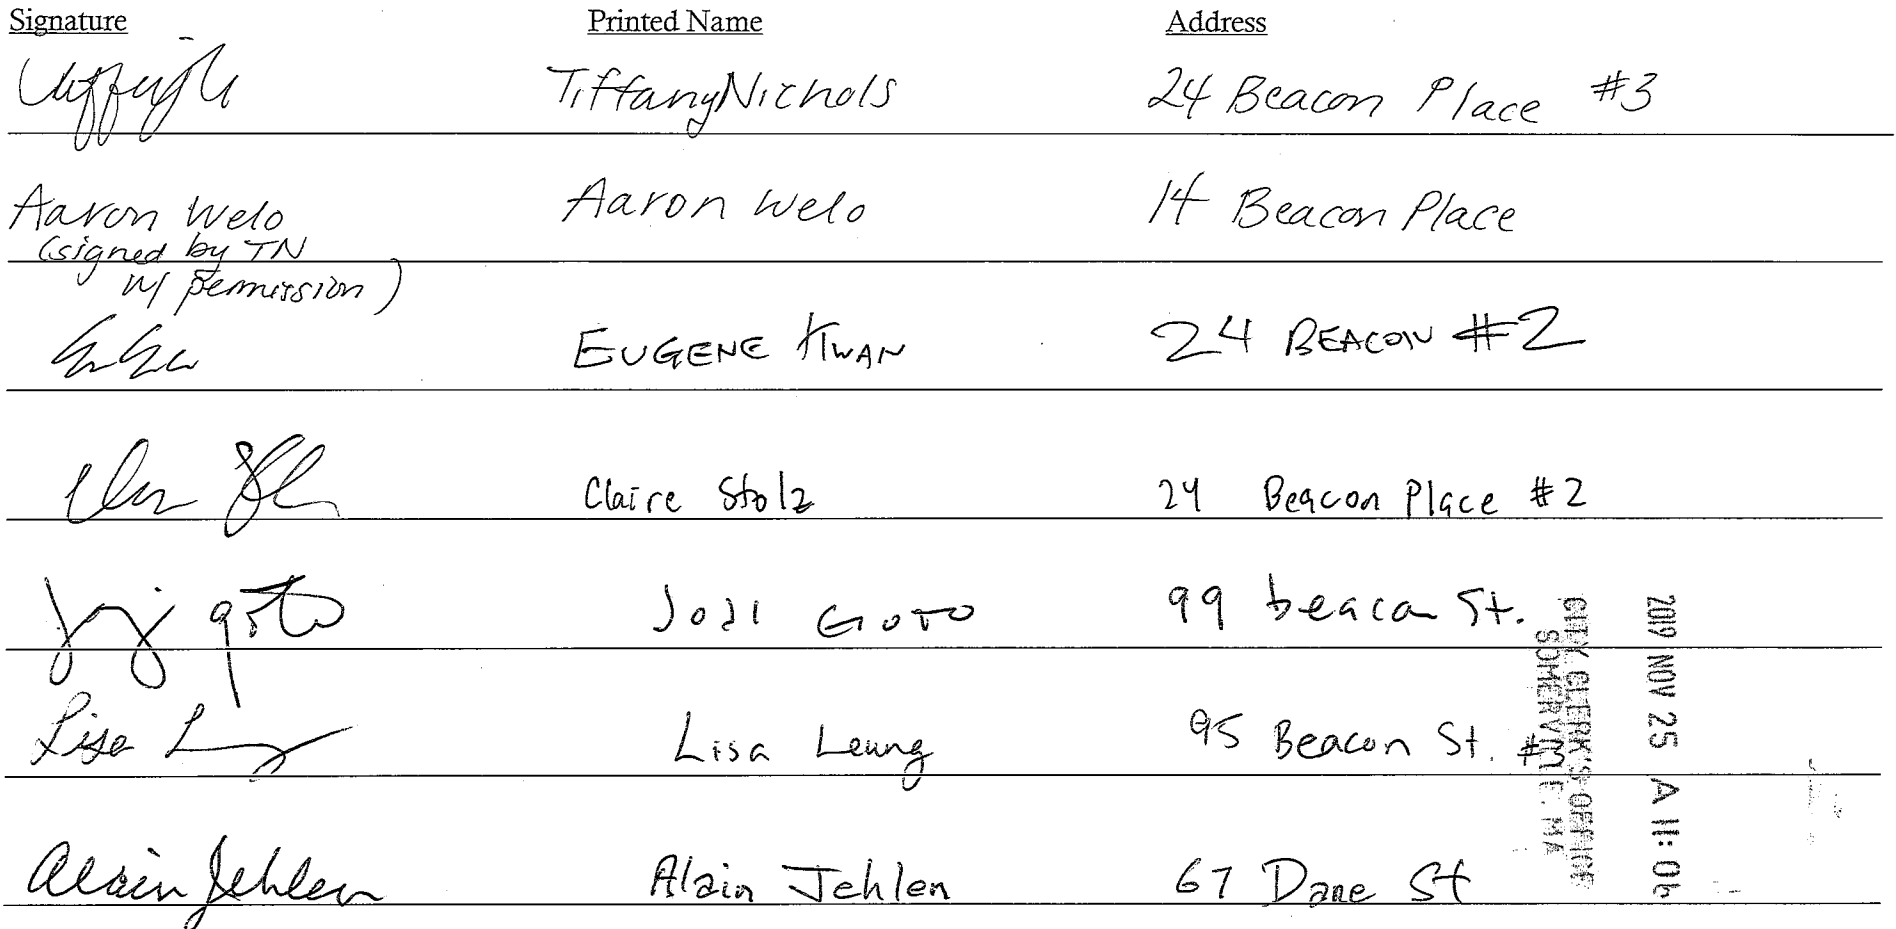 Signature Printed Name Address
Tiffany Nichols 24 Beacon Place #3
Aaron Welo Aaron Welo 14 Beacon Place
(signed by TN
w/ permission)
EUGENE KWAN 24 BEACON #2
Claire Stolz 24 Beacon Place #2
Joji Goto 99 beacon St.
Lisa L Lisa Leung 95 Beacon St. #3
Alain Jehlen Alain Jehlen 67 Dane St
2019 NOV 25 A 11: 06
CITY CLERK'S OFFICE
SOMERVILLE. MA